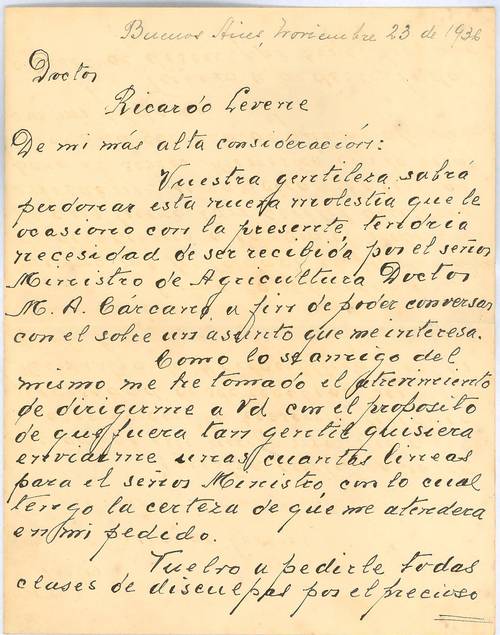 Buenos Aires, Noviembre 23 de 1936
Doctor
Ricardo Levene
De mi más alta consideración:
Vuestra gentileza sabrá
perdonar esta nueva molestia que le
ocasiono con la presente, tendria
necesidad de ser recibida por el señor
Ministro de Agricultura Doctor
M. A. Cárcano, a fin de poder conversar
con el sobre un asunto que me interesa.
Como lo se amigo del
mismo me he tomado el atrevimiento
de dirigirme a Vd con el proposito
de que fuera tan gentil quisiera
enviarme unas cuantas lineas
para el señor Ministro, con lo cual
tengo la certeza de que me atendera
en mi pedido.
Vuelvo a pedirle todas
clases de disculpas por el precioso